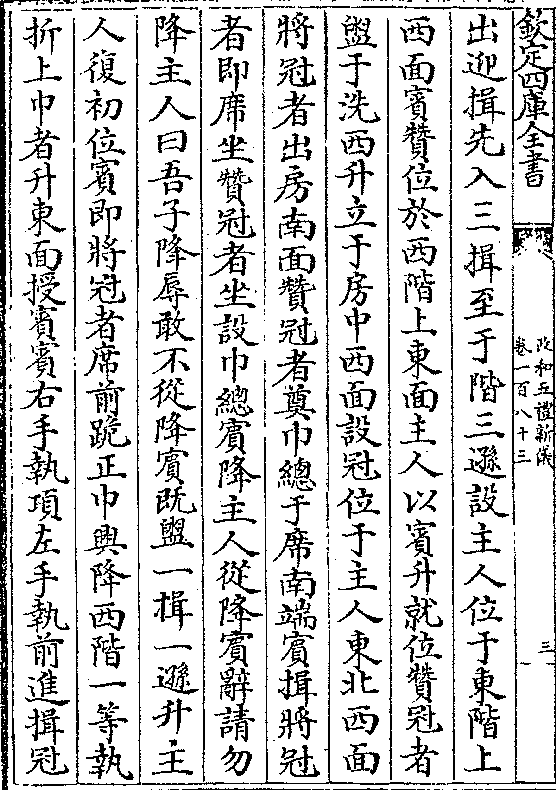 欽定四庫全書
政和五禮新儀
卷一百八十三
三
出迎揖先入三揖至于階三遜設主人位于東階上
西面賓贊位於西階上東面主人以賓升就位贊冠者
盥于洗西升立于房中西面設冠位于主人東北西面
將冠者出房南面贊冠者奠巾總于席南端賓揖將冠
者即席坐贊冠者坐設巾總賓降主人從降賓辭請勿
降主人曰吾子降辱敢不從降賓既盥一揖一遜升主
人復初位賓即將冠者席前跪正巾興降西階一等執
折上巾者升東面授賓賓右手執項左手執前進揖冠